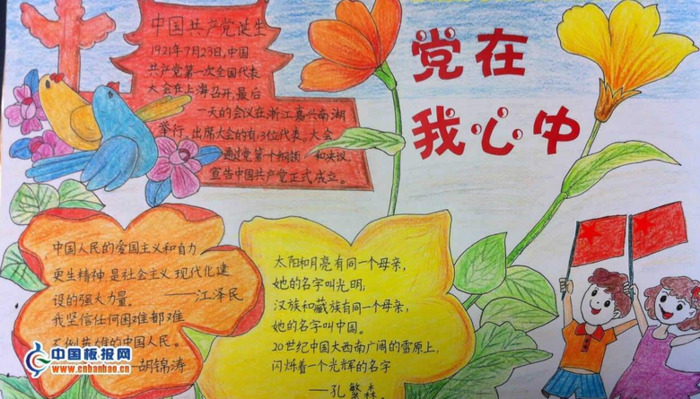 党在
我心中
中国共产党诞生
1921年7月23日,中国
共产党第一次全国代表
大会在上海召开,最后
一天的会议在浙江嘉兴南湖
举行。出席大会的有13位代表。大会
通过党第个纲领 和决议,
宣告中国共产党正式成立。
中国人民的爱国主义和自力
更生精神是社会主义现代化建
设的强大力量。
——江泽民
我坚信任何困难都难
不倒英雄的中国人民。
胡锦涛
太阳和月亮有同一个母亲,
她的名字叫光明,
汉族和藏族有同一个母亲,
她的名字叫中国。
20世纪中国大西南广阔的雪原上,
闪烁着一个光辉的名字
——孔繁森
中国板报网
www.cnbanbao.cn